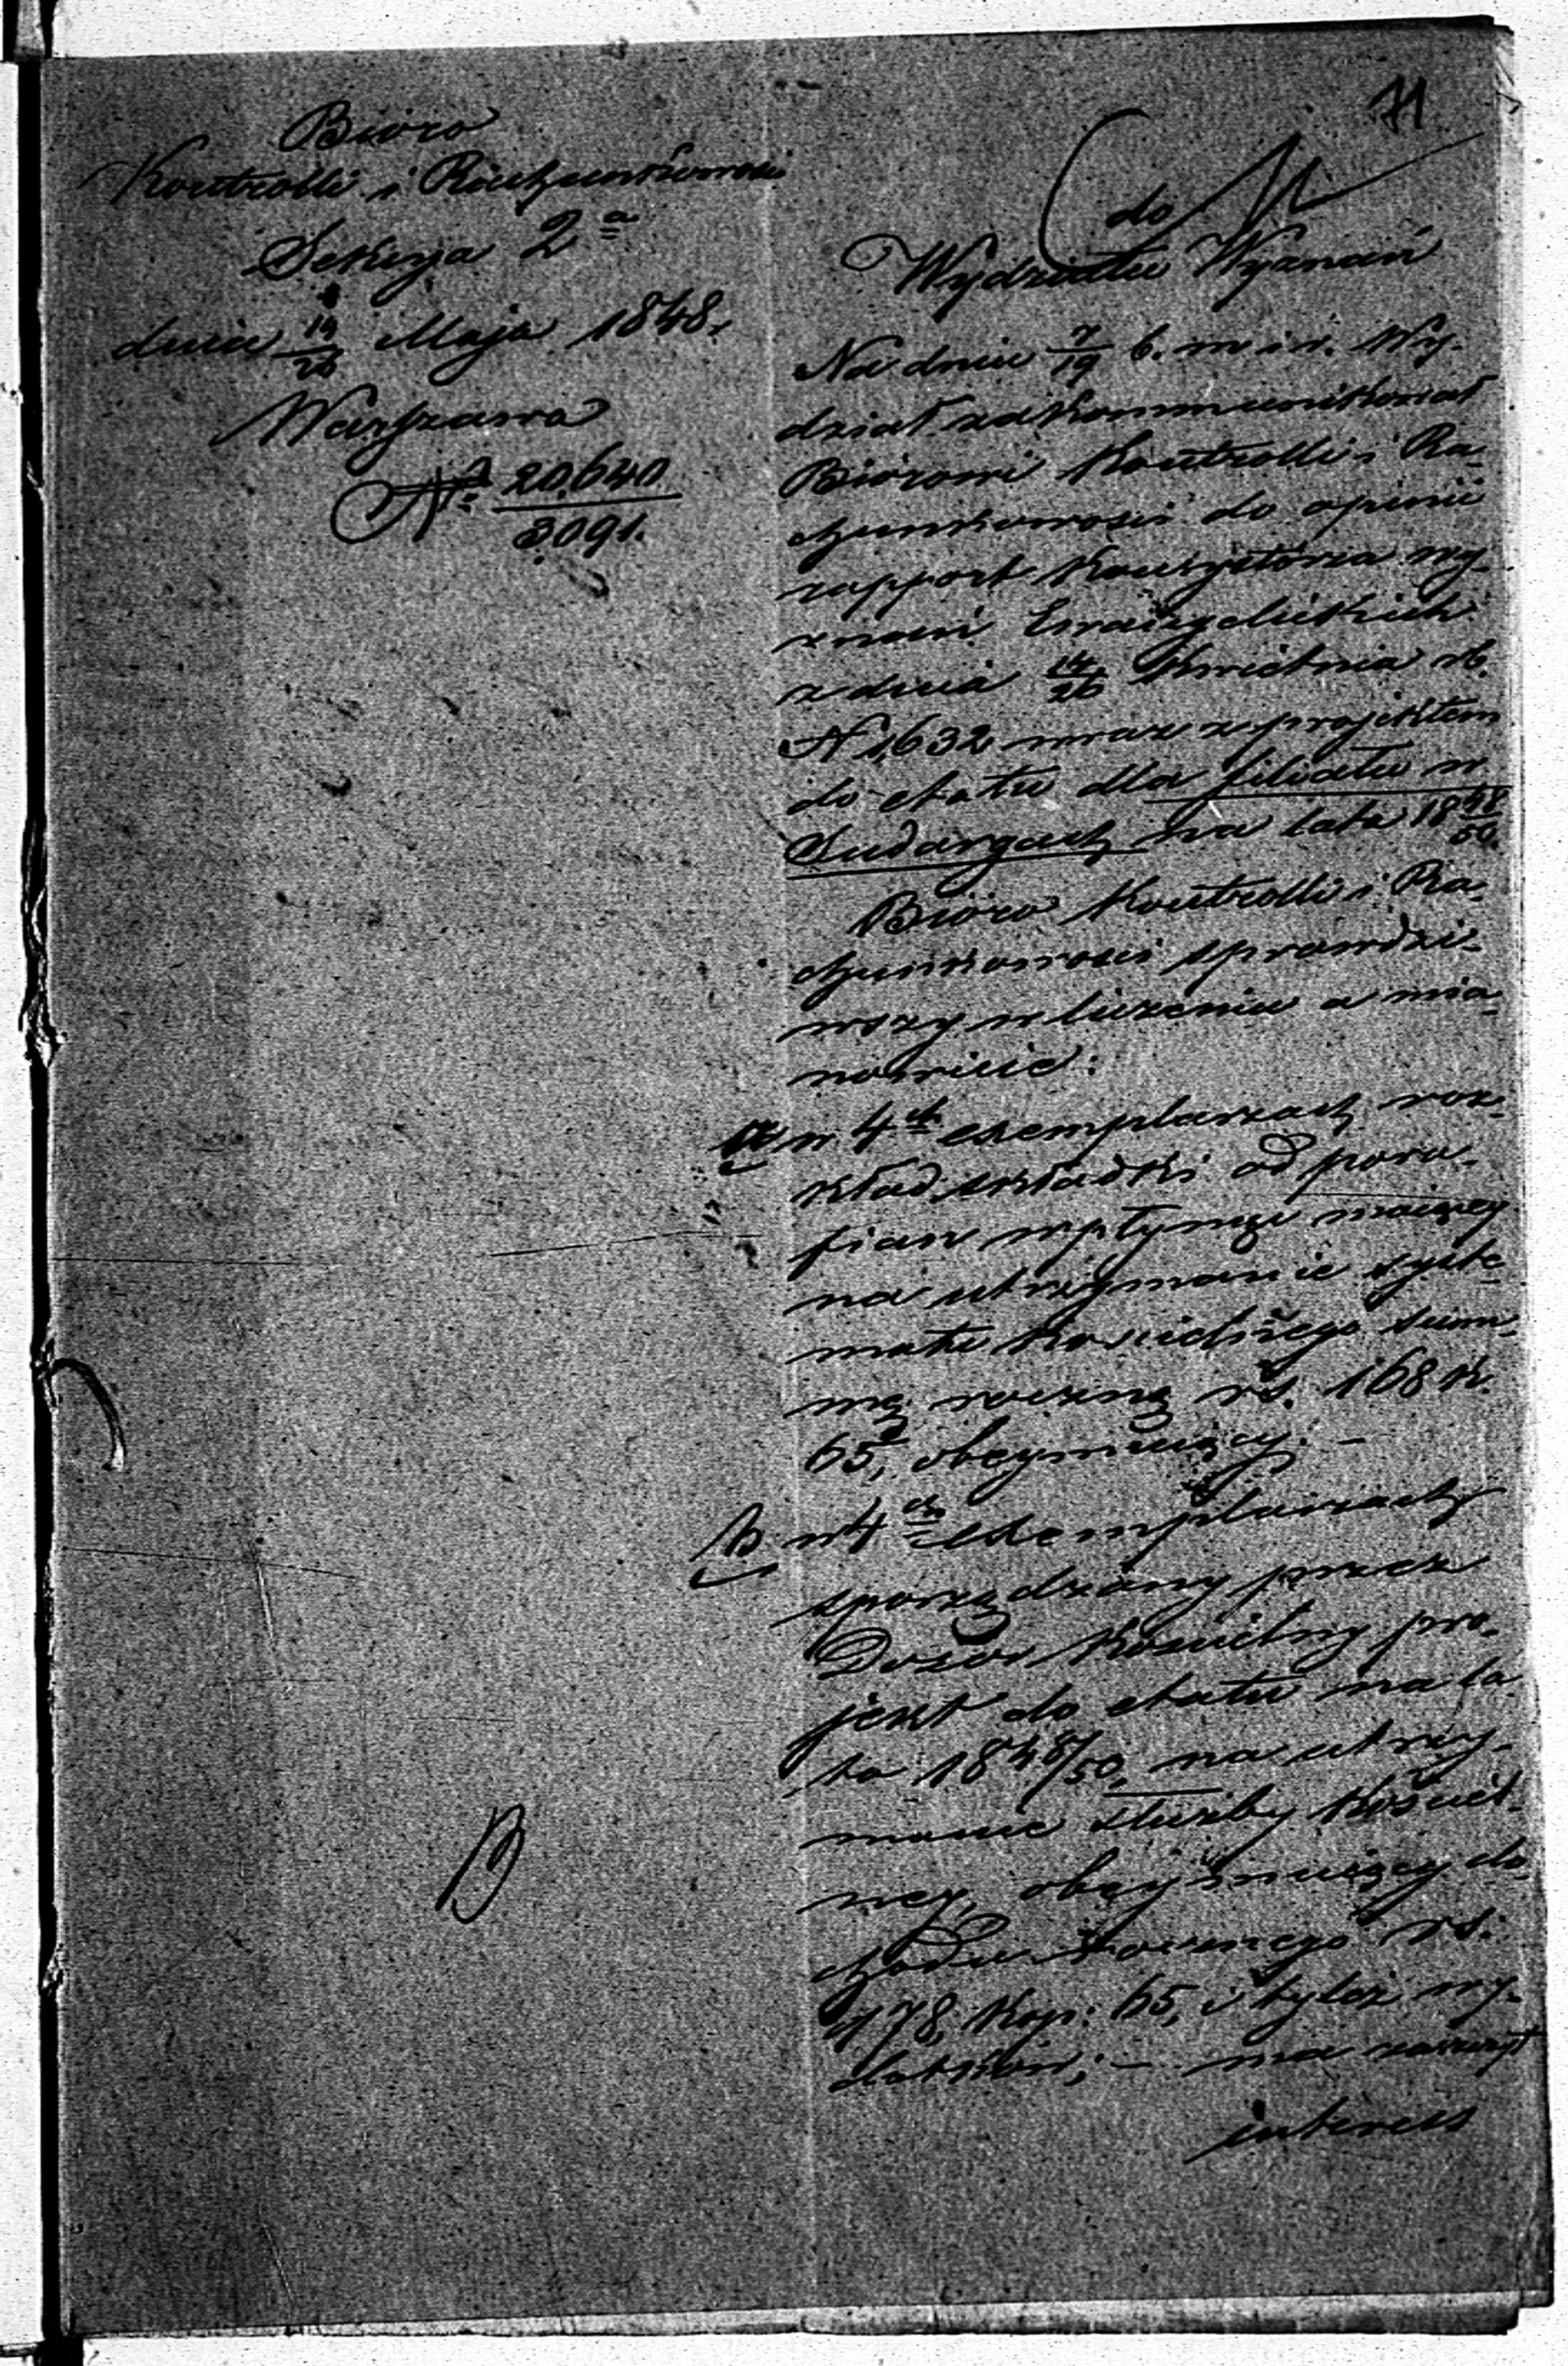 71
Bióro
Kontrolli i Rachunkowości
Sekcya 2ª
dnia 14/26 Maja 1848 r.
Warszawa
N° 20,640/3091.
do
Wydziału Wyznań
Na dniu 7/19 b. m i r. Wy-
dział zakommunikował
Biórowi Kontrolli i Ra-
chunkowości do opinii
rapport Konsystorza wy-
znań Ewangelickich
z dnia 14/26 Kwietnia rb.
N 1,632 wraz z projektem
do etatu dla filiału w
Sudargach na lata 1848/50.
Bióro Kontrolli i Ra-
chunkowości sprawdzi-
wszy w liczeniu a mia-
nowicie:
a w 4ch exemplarzach roz-
kład składki od para-
fian wpłynąć maiącey
na utrzymanie syste-
matu Kościelnego sum-
mę roczną rs. 168 k.
65, obeymuiący. —
b w 4ch exemplarzach
sporządzony przez
Dozór Kościelny pro-
jekt do etatu na la-
ta 1848/50, na utrzy-
manie służby Kościel-
ney, obeymuiący do-
chodu rocznego rs:
478, Kop: 65, i tyleż wy-
datków; — ma zaszczyt
interess
B